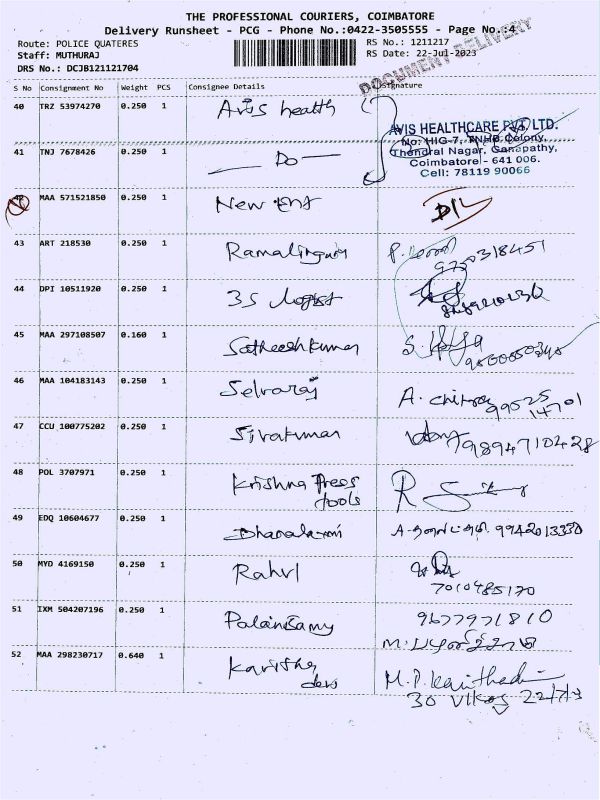 THE PROFESSIONAL COURIERS, COIMBATORE
Delivery Runsheet - PCG - Phone No.:0422-3505555 - Page No.:4
Route: POLICE QUATERES
RS No.: 1211217
Staff: MUTHURAJ
RS Date: 22-Jul-2023
DRS No.: DCJB121121704
DOCUMENT DELIVERY
S No Consignment No Weight PCS Consignee Details Signature
40 TRZ 53974270 0.250 1 Avis health
AVIS HEALTHCARE PVT. LTD.
No: HIG-7, TNHB Colony,
Thendral Nagar, Ganapathy,
Coimbatore - 641 006.
Cell: 78119 90066
41 TNJ 7678426 0.250 1 — Do —
42 MAA 571521850 0.250 1 New
43 ART 218530 0.250 1 Ramalingam
9750318451
44 DPI 10511920 0.250 1 3S
45 MAA 297108507 0.160 1 Satheeshkumar
46 MAA 104183143 0.250 1 Selvaraj A. chitra
99525
14701
47 CCU 100775202 0.250 1 Sivakumar
9894710428
48 POL 3707971 0.250 1 Krishna Press
tools
49 EDQ 10604677 0.250 1 Dhanalaxmi 9942013330
50 MYD 4169150 0.250 1 Rahul
7010485170
51 IXM 504207196 0.250 1 Palanisamy 9677971810
52 MAA 298230717 0.640 1 Kavitha
devi
M.P. Kavithadevi
30 Vikas 22/7/3